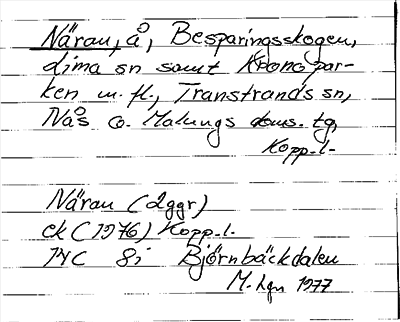 Näran, å, Besparingsskogen,
Lima sn samt Kronopar-
ken m.fl., Transtrands sn,
Nås o. Malungs doms. tg,
Kopp. l.
Näran (2ggr)
ek (1976) Kopp. l.
14C 8i Björnbäckdalen
M. Lgn 1977